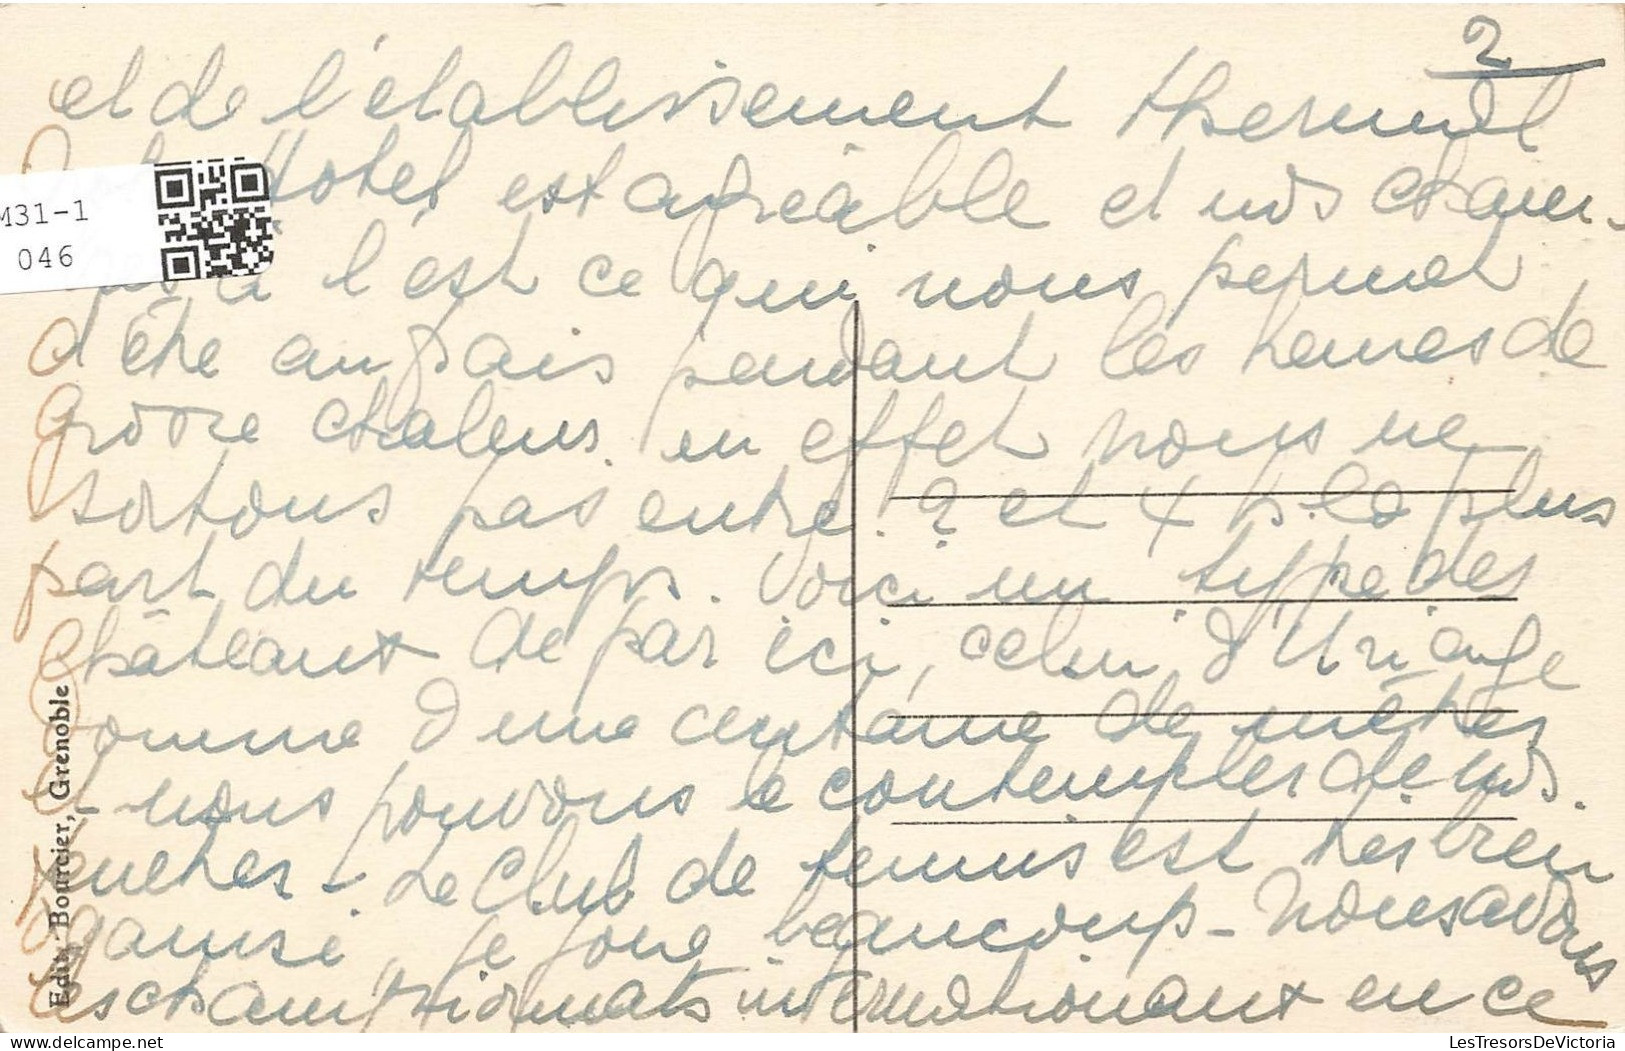 2
et de l'établissement thermal
Hotel est agréable et nos cham-
à l'est ce qui nous permet
d'être au frais pendant les heures de
grosse chaleur. en effet nous ne
sortons pas entre 2 et 4 h. la plus
part du temps. Voici un type des
châteaux de par ici, celui d'Uriage
domine d'une centaine de mètres
et nous pouvons le contempler de nos
fenêtres - Le Club de tennis est très bien
organisé, je joue beaucoup - Nous avons
les championnats internationaux en ce
M31-1
046
Edit. Bourcier, Grenoble
LesTresorsDeVictoria